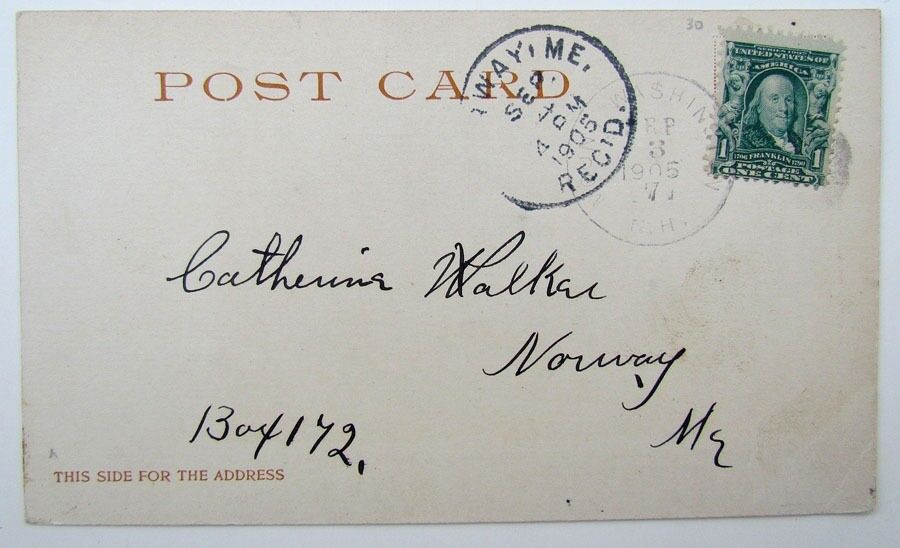 30
POST CARD
WAY, ME.
SEP
10 M
1905
REC'D.
WASHIN
EP
3
1905
7
N.H.
SERIES 1902
UNITED STATES OF
AMERICA
1 1706 FRANKLIN 1790 1
POSTAGE
ONE CENT
Catherine Walker
Norway
Me
Box 172.
THIS SIDE FOR THE ADDRESS